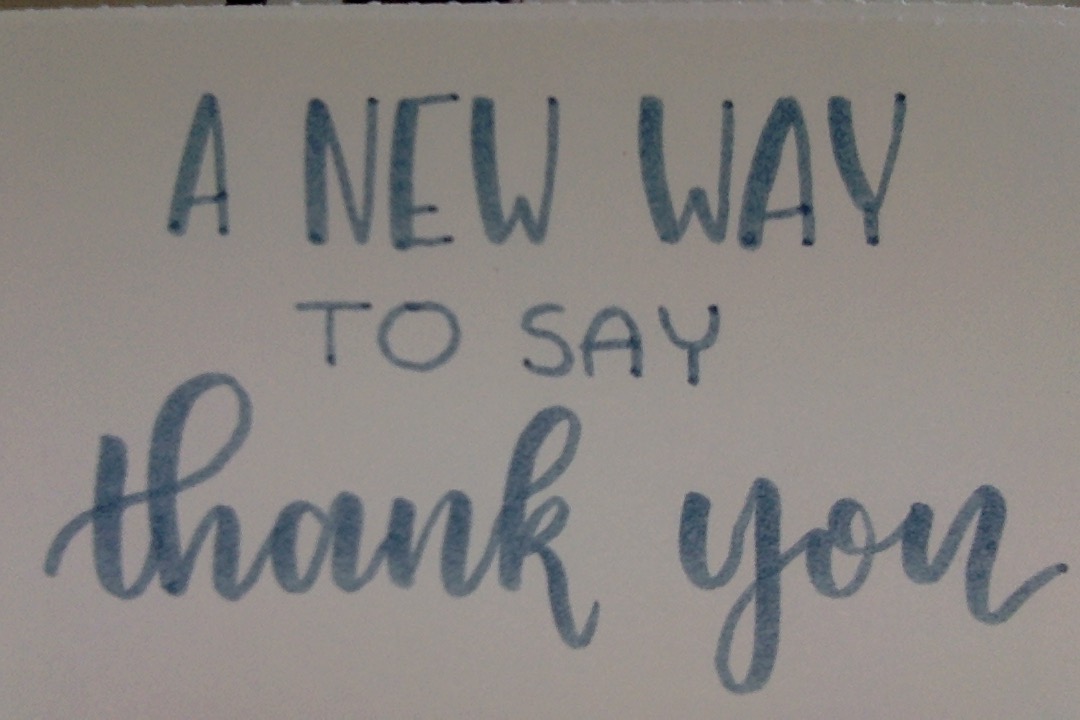 A NEW WAY
TO SAY
thank you